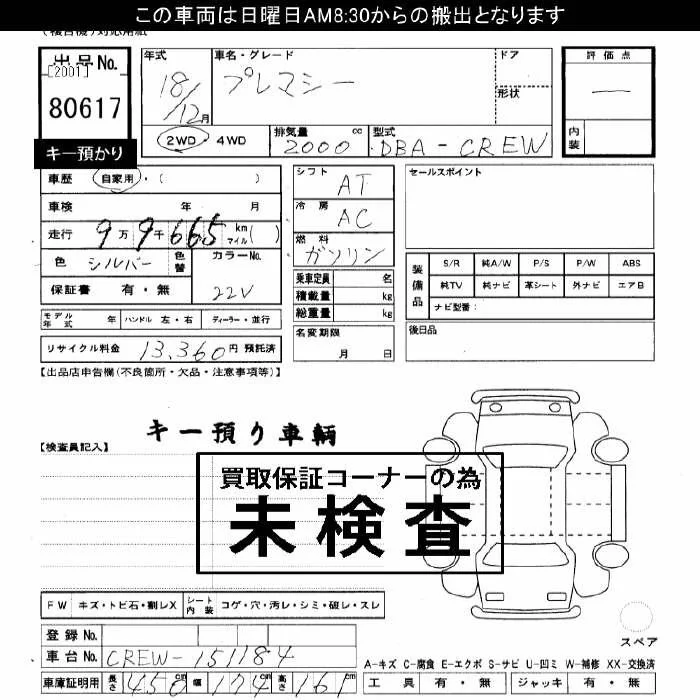 この車両は日曜日AM8:30からの搬出となります
出品No.
[2001]
80617
キー預かり
年式
18/12月
車名・グレード
プレマシー
ドア
形状
評価点
—
内装
2WD・4WD
排気量 2000 cc
型式 DBA-CREW
車歴 自家用・( )
車検 年 月
走行 9万9千665 km マイル( )
色 シルバー 色替 カラーNo.
22V
保証書 有・無
モデル年式 年 ハンドル 左・右 ディーラー・並行
リサイクル料金 13,360円 預託済
シフト
AT
冷房
AC
燃料
ガソリン
乗車定員 名
積載量 kg
総重量 kg
名変期限
月 日
セールスポイント
装備品
S/R 純A/W P/S P/W ABS
純TV 純ナビ 革シート 外ナビ エアB
ナビ型番:
後日品
【出品店申告欄(不良箇所・欠品・注意事項等)】
キー預り車輌
【検査員記入】
買取保証コーナーの為
未検査
FW キズ・トビ石・割レX シート内装 コゲ・穴・汚レ・シミ・破レ・スレ
登録No.
車台No. CREW-151184
車庫証明用 長さ 450 cm 幅 174 cm 高さ 161 cm
スペア
A-キズ C-腐食 E-エクボ S-サビ U-凹ミ W-補修 XX-交換済
工具 有・無 ジャッキ 有・無